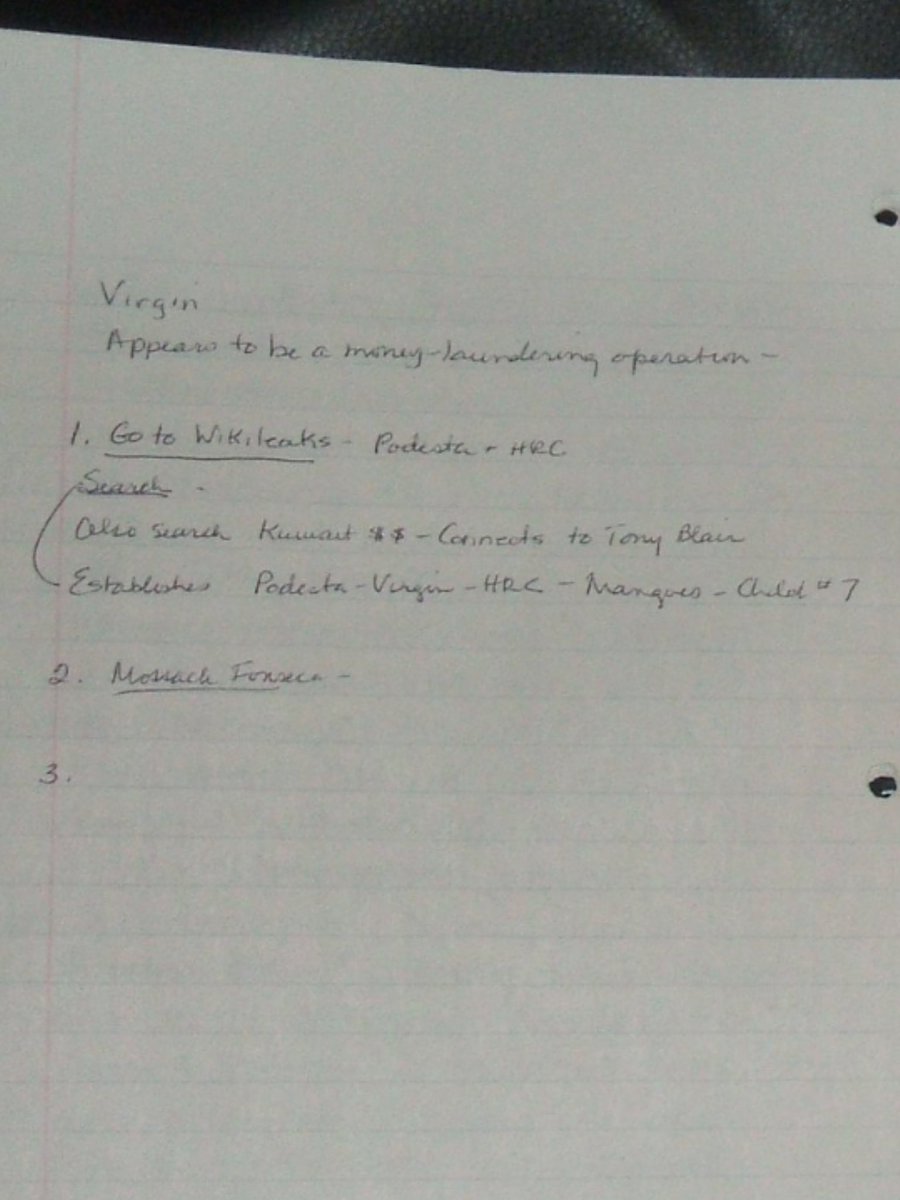 Virgin
Appears to be a money-laundering operation -
1. Go to Wikileaks - Podesta + HRC
Search -
Also search Kuwait $$ - Connects to Tony Blair
Establishes Podesta - Virgin - HRC - Marques - Child # 7
2. Mossack Fonseca -
3.